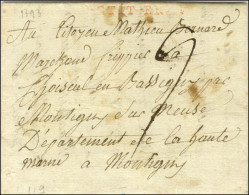 1793
Au Citoyen Mathieu Bernard
Marchand frippier a
Choiseul en Bassigny par
Montigny sur Meuse
Département de la haute
marne a Montigny
119